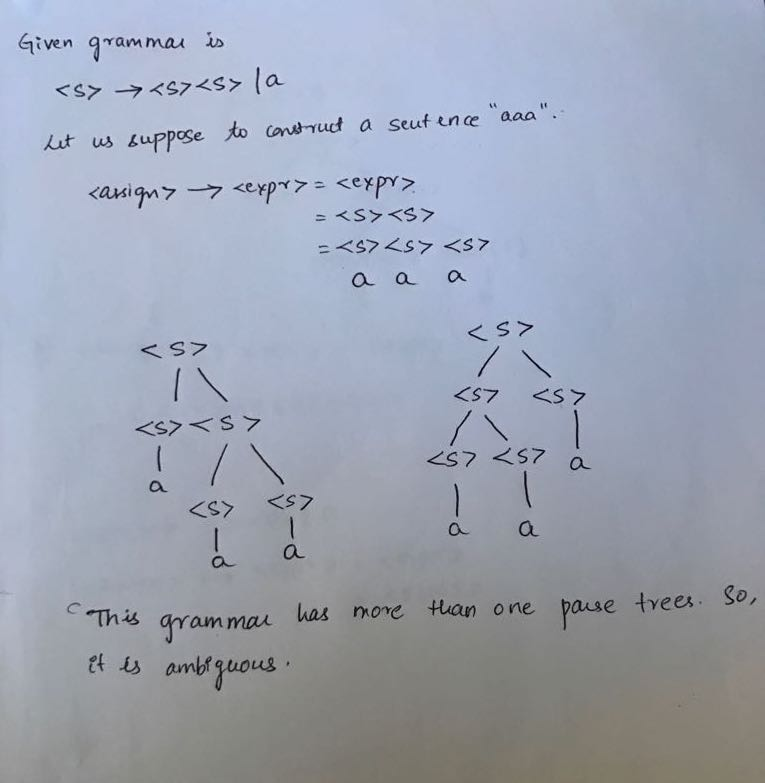 Given grammar is
<S> → <S><S> | a
Let us suppose to construct a sentence "aaa".
<assign> → <expr> = <expr>
= <S><S>
= <S><S> <S>
a a a
<S>
<S> <S>
a
<S> <S>
a a
<S>
<S> <S>
<S> <S> a
a a
This grammar has more than one parse trees. So,
it is ambiguous.